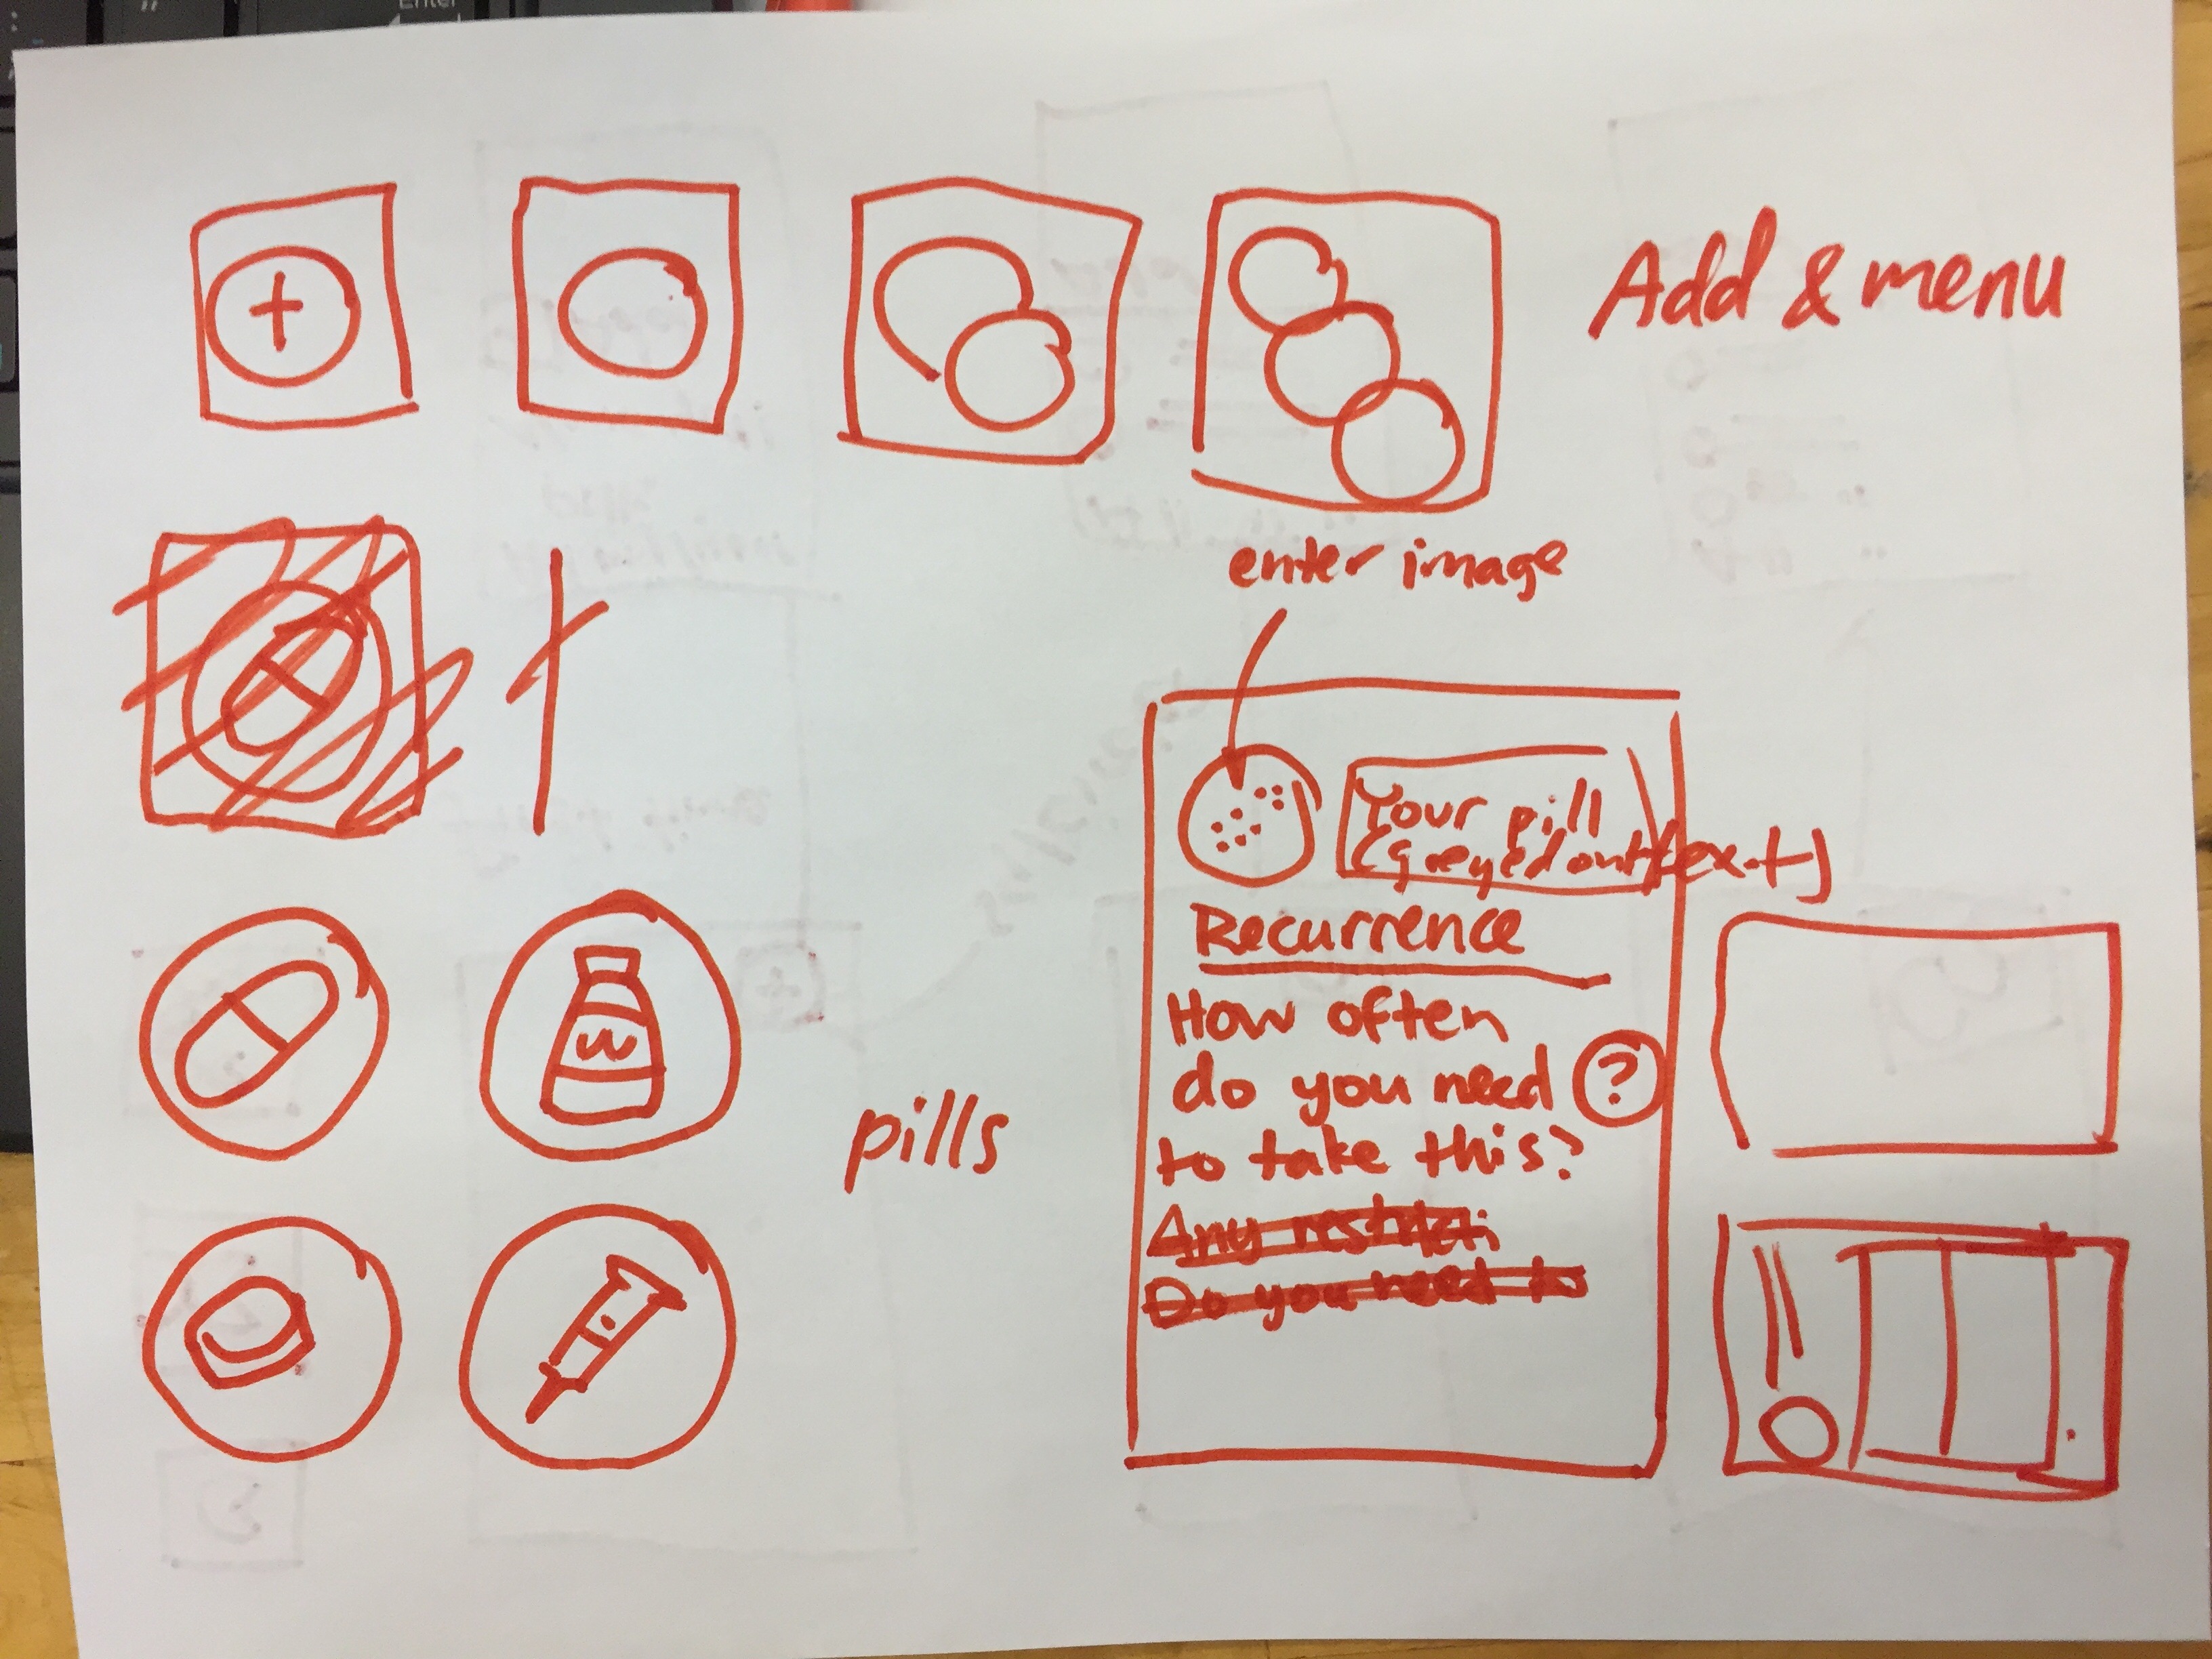 Enter
+
Add & menu
enter image
Your pill
(greyed out text)
Recurrence
How often
do you need ?
to take this?
Any restricti
Do you need to
pills